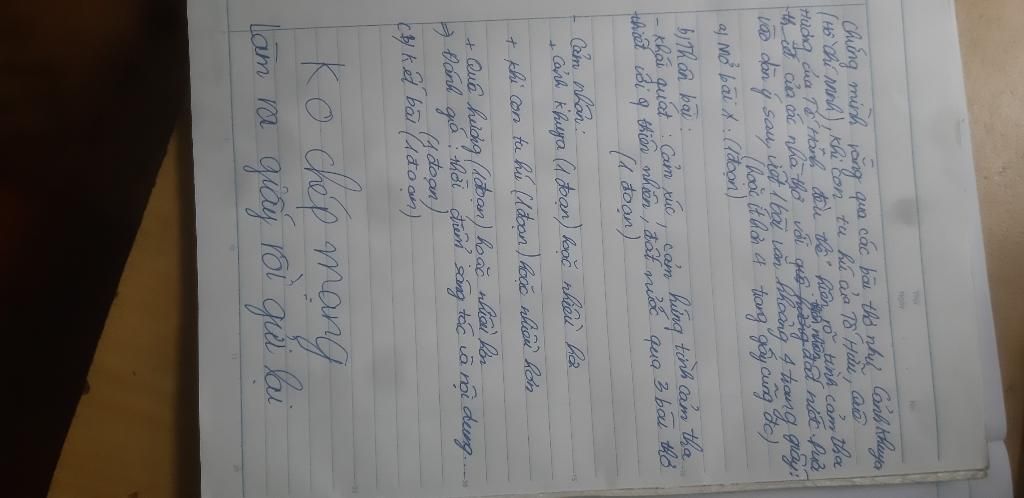 Chứng minh rằng qua các bài thơ như Cảnh khuya
(Hồ Chí Minh), Khi con tu hú của Tố Hữu, Quê
Hương của Tế Hanh đều thể hiện rõ tình cảm tha
thiết của các nhà thơ với thiên nhiên đất nước. Dựa
vào dàn ý sau, viết 1 bài văn khoảng 4 trang giấy
(hoặc ít hơn 4 trang giấy cũng đc)
a) Mở bài: (1 đoạn)
b) Thân bài:
- Khái quát: Cảm xúc, cảm hứng tình cảm tha
thiết với q thiên nhiên, đất nước qua 3 bài thơ
(1 đoạn)
- Cảm nhận:
+ Cảnh khuya (1 đoạn) hoặc nhiều hơn
+ Khi con tu hú (1 đoạn) hoặc nhiều hơn
+ Quê hương (1 đoạn) hoặc nhiều hơn
=> Đánh giá: thời điểm sáng tác và nội dung...
(1 đoạn)
c) Kết bài (1 đoạn)
Ko chép mạng
Làm ra giấy rồi gửi lại